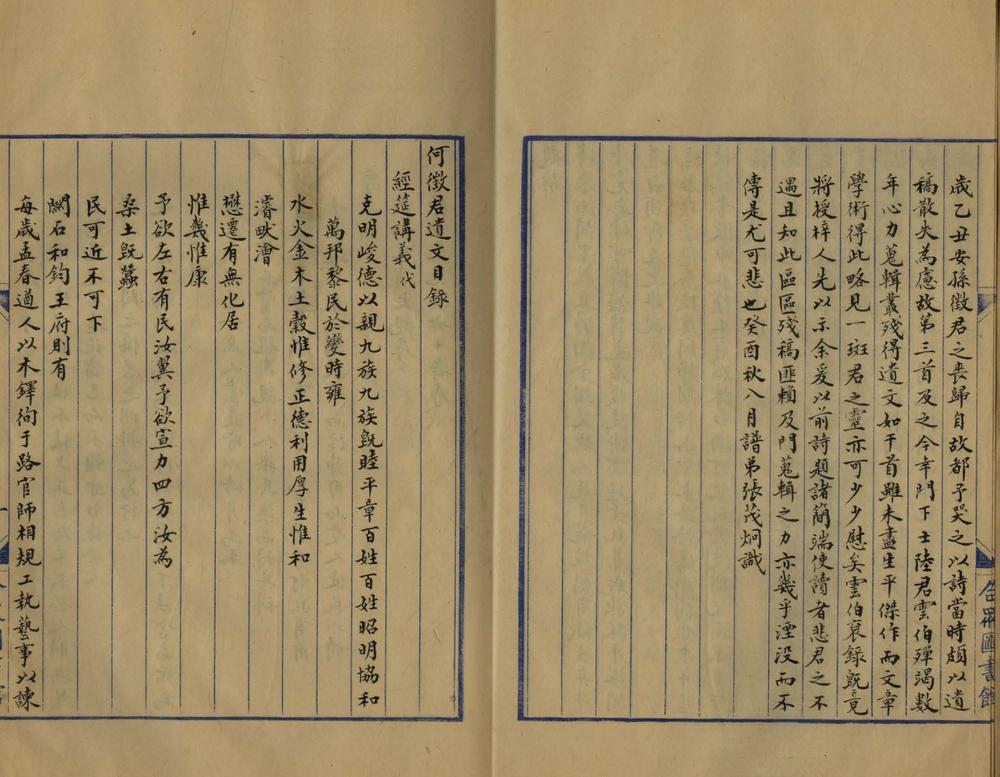 歲乙丑安孫徵君之喪歸自故都予哭之以詩當時頗以遺
稿散失為慮故第三首及之今幸門下士陸君雲伯殫竭數
年心力蒐輯叢殘得遺文如干首雖未盡生平傑作而文章
學術得此略見一斑君之靈亦可少少慰矣雲伯裒錄既竟
將授梓人先以示余爰以前詩題諸簡端使讀者悲君之不
遇且知此區區殘稿匪賴及門蒐輯之力亦幾乎湮没而不
傳是尤可悲也癸酉秋八月譜弟張茂炯識
合眾圖書館
何徵君遺文目錄
經筵講義代
克明峻德以親九族九族既睦平章百姓百姓昭明協和
萬邦黎民於變時雍
水火金木土穀惟修正德利用厚生惟和
濬畎澮
懋遷有無化居
惟幾惟康
予欲左右有民汝翼予欲宣力四方汝為
桑土既蠶
民可近不可下
關石和鈞王府則有
每歲孟春遒人以木鐸徇于路官師相規工執藝事以諫